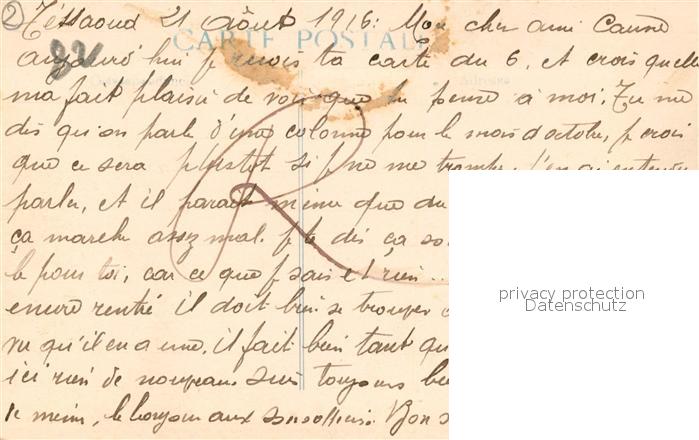 2
Téssaoud 21 Août 1916: Mon cher ami
CARTE POSTALE
aujourd'hui je reçois ta carte du 6, et crois quelle
ma fait plaisir de voir que tu pense à moi. Tu me
dis qu'on parle d'une colonne pour le mois d'octobre, je crois
que ce sera plustot si je ne me trompe, j'en ai entendu
parler, et il parait même que du
ça marche assez mal. je te dis ça
le pour toi, car ce que je sais et rien ..
encore rentré il doit bien se trouver
vu qu'il en a une, il fait bien tant qu
ici rien de nouveau suis toujours
le même, le bonjour aux sous officiers. Bon
privacy protection
Datenschutz